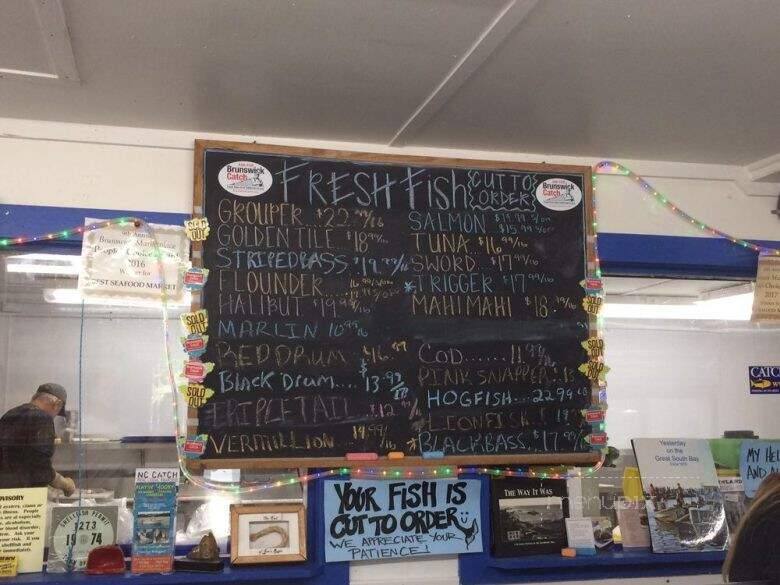 FRESH FISH
CUT TO
ORDER
Brunswick
Catch
Brunswick
Catch
GROUPER $22.99/lb
GOLDEN TILE $18
STRIPED BASS $19.99/lb
FLOUNDER
HALIBUT $19.99/lb
MARLIN 10.99/lb
RED DRUM $16.99
BLACK DRUM.... 13.99/lb
TRIPLETAIL $12
VERMILLION 14.99/lb
SALMON $19.99
$15.99
TUNA $16.99/lb
SWORD $17.99/lb
*TRIGGER $17.99/lb
MAHI MAHI $18.99/lb
COD...... 11.99/lb
PINK SNAPPER
HOGFISH... 22.99 lb
LIONFISH
*BLACK BASS. $17.99/lb
SOLD
OUT
SOLD
OUT
SOLD
OUT
SOLD
OUT
2016
BEST SEAFOOD MARKET
2017
NC CATCH
1273
19 74
YOUR FISH IS
CUT TO ORDER
WE APPRECIATE YOUR
PATIENCE!
THE WAY IT WAS
Yesterday
on the
Great South Bay
CATC
MY HEL
AND A
menupix